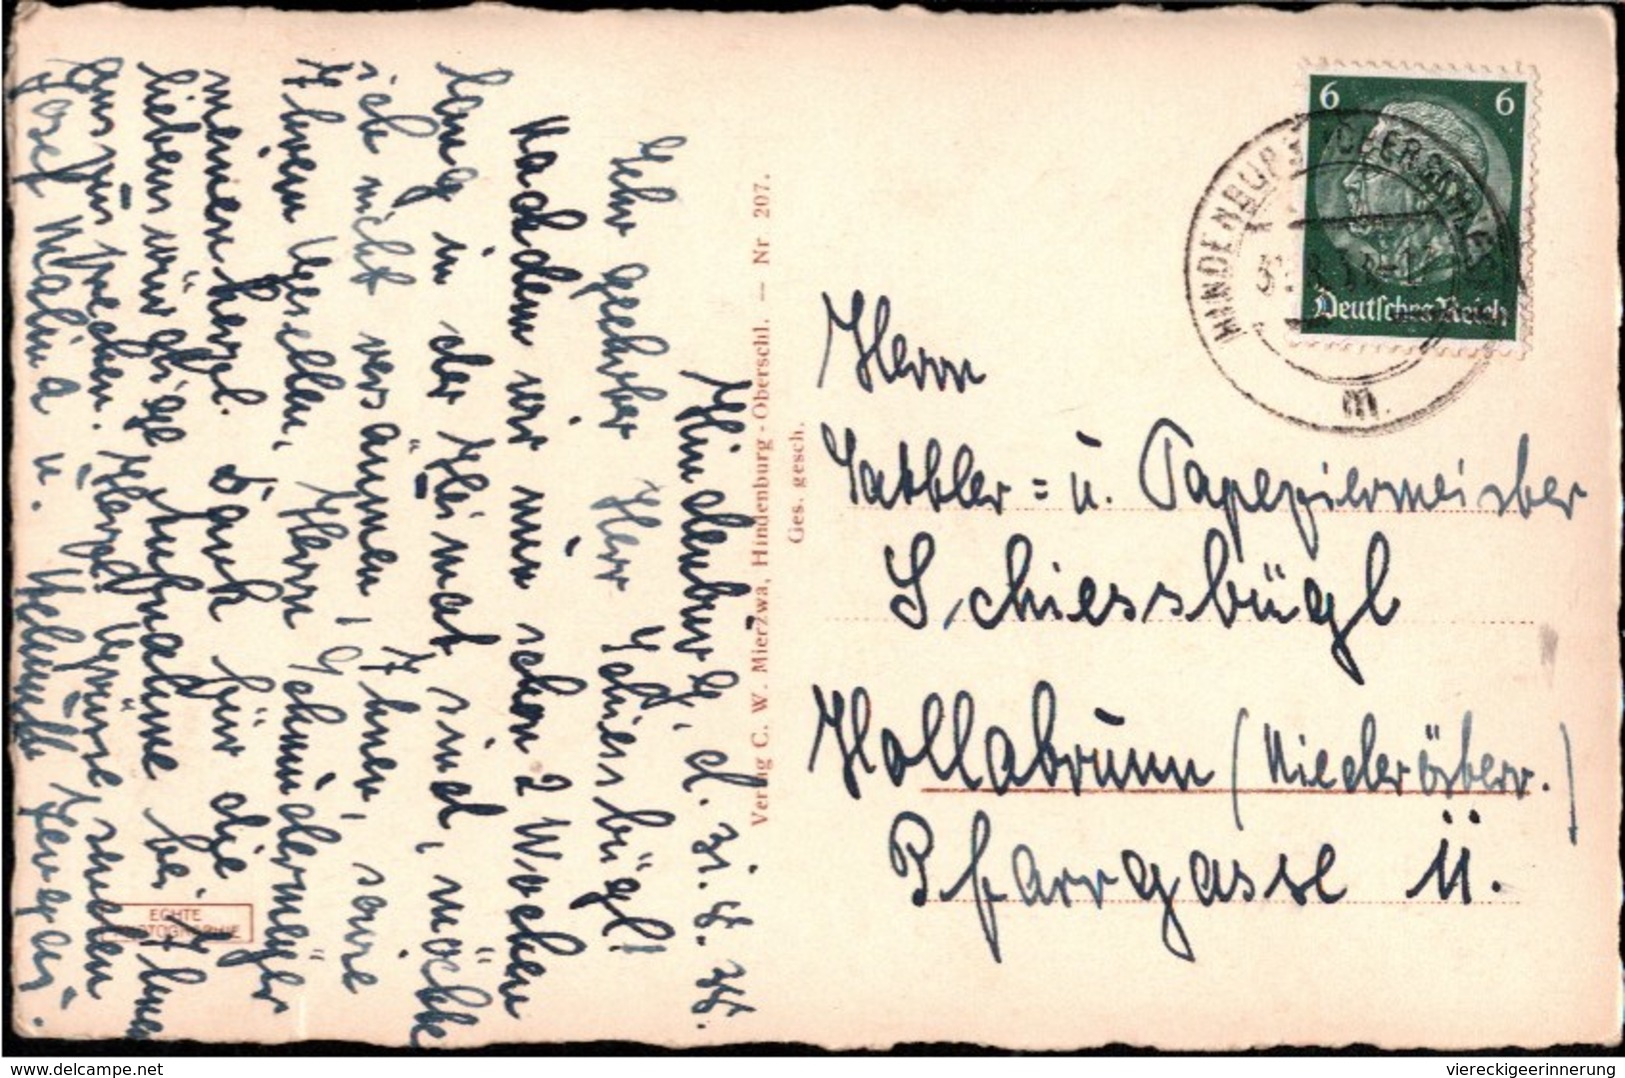 Hindenburg, d. 31.8.38.
Sehr geehrter Herr Schiessbügl!
Nachdem wir nun schon 2 Wochen
lang in der Heimat sind, möchte
ich nicht versäumen, Ihnen, sowie
Ihren Gesellen, Herrn Schmiedermeyer
meinen herzl. Dank für die
liebenswürdige Aufnahme bei Ihnen
auszusprechen. Herzl. Grüsse senden
Josef Malina u.
6 6
Deutsches Reich
HINDENBURG (OBERSCHLES)
m
Herrn
Sattler= u. Tapezierermeister
Schiessbügl
Hollabrunn (Niederösterr.)
Pfarrgasse 11.
Verlag C. W. Mierzwa, Hindenburg-Oberschl. — Nr 207.
Ges. gesch.
ECHTE
PHOTOGRAPHIE
www.delcampe.net
viereckigeerinnerung